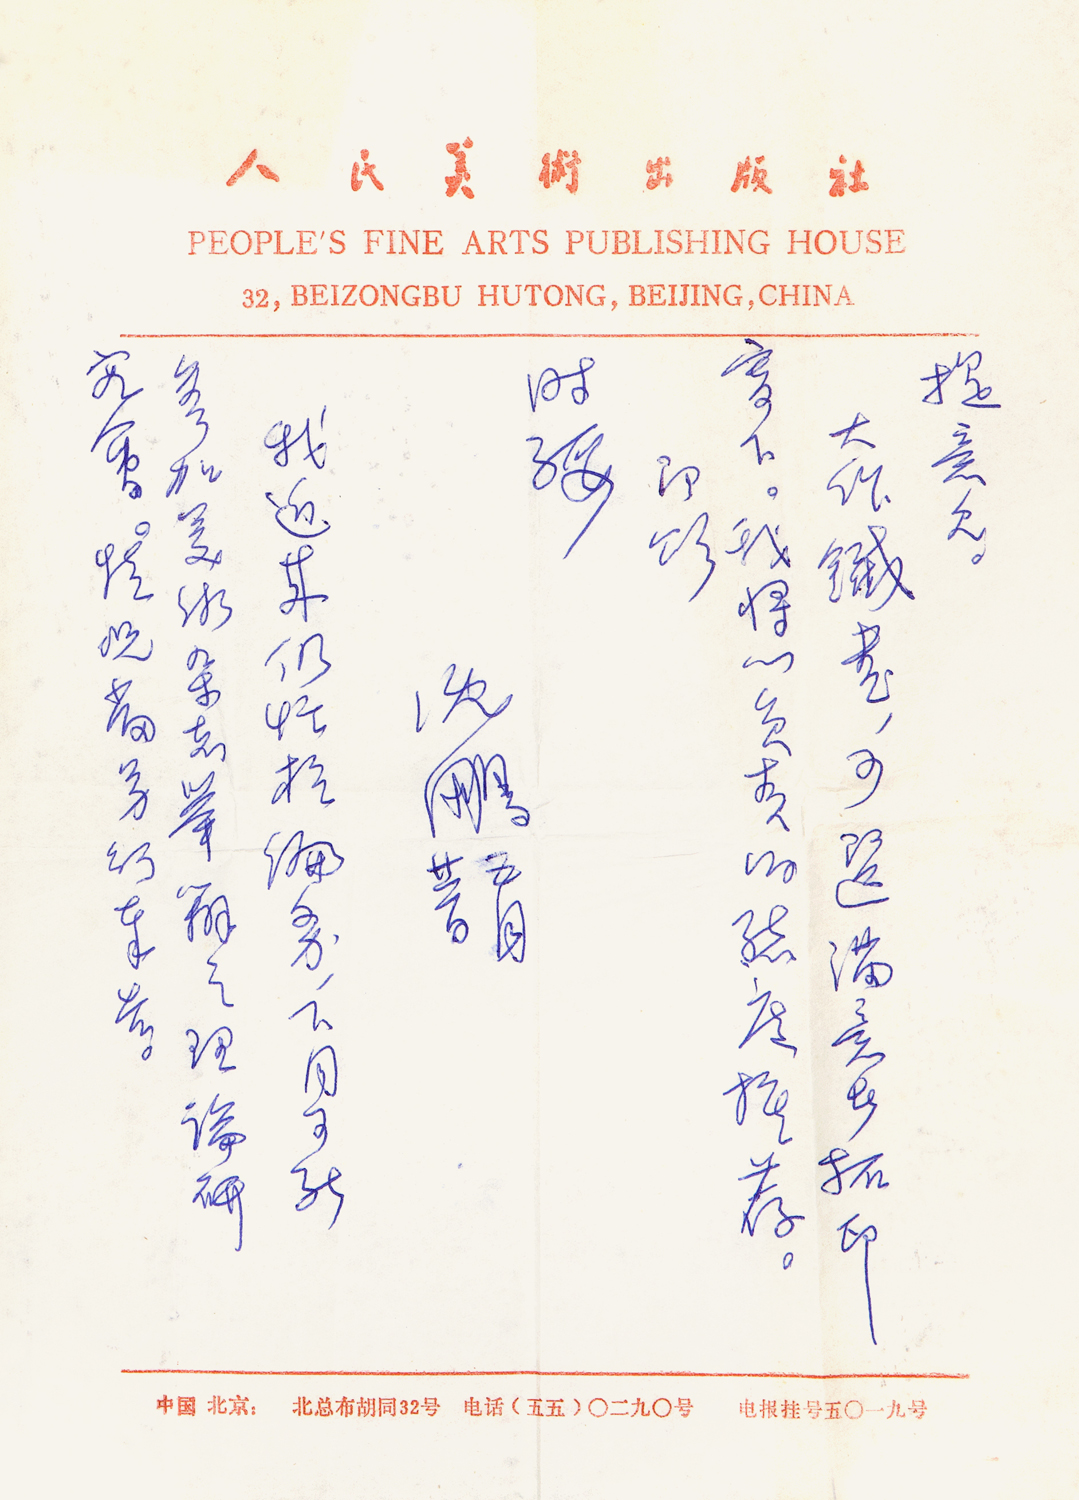 人民美術出版社
PEOPLE'S FINE ARTS PUBLISHING HOUSE
32, BEIZONGBU HUTONG, BEIJING, CHINA
提意见。
大作铁書,可选满意者拓印
寄下。我将以负责的态度推荐。
即颂
时绥
沈鹏
五月
廿一日
我近来仍忙於编务,下月可能
参加美术杂志举办之理论研
究會。
中国 北京: 北总布胡同32号 电话(五五)〇二九〇号 电报挂号五〇一九号